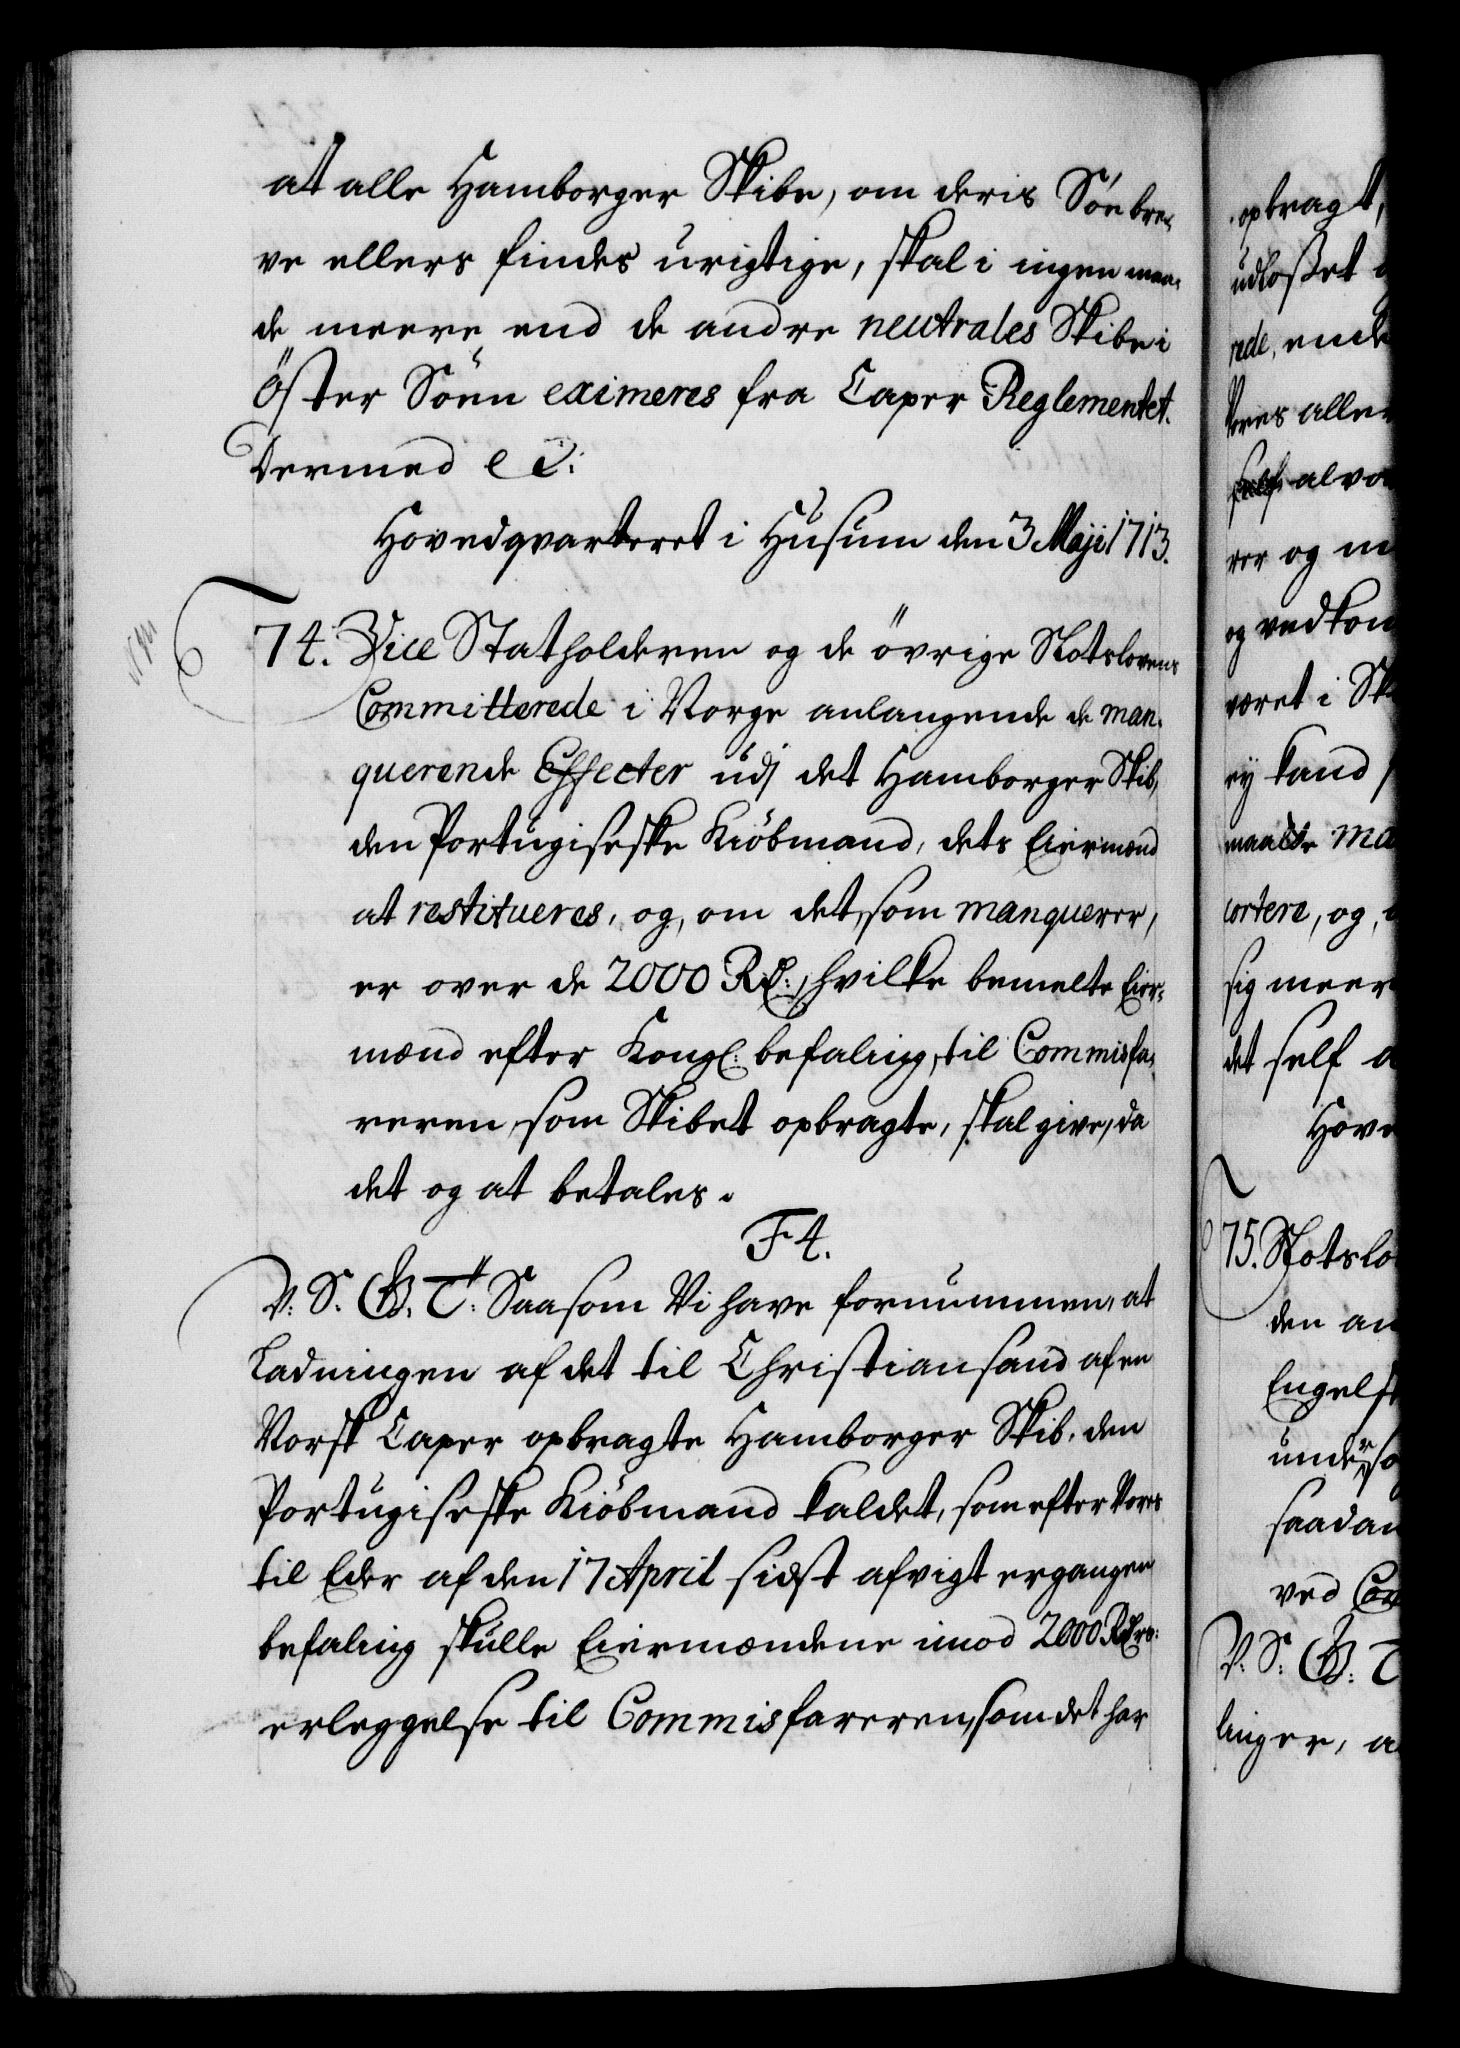 at alle Hamborger Skibe, om deris Söe bre-
ve ellers findes urigtige, skal i ingen maa-
de meere end de andre neutrales Skibe i
Öster Söen eximeres fra Caper Reglementet.
Dermed etc:
Hovedqvarteret i Husum den 3 Maji 1713.
74. Vice Statholderen og de övrige Slotslovens
Committerede i Norge anlangende de man-
querende Effecter udj det Hamborger Skib,
den Portugiseske Kiöbmand, dets Eiermænd
at restitueres, og, om det, som manquerer,
er over de 2000 Rd:, hvilke bemelte Eier-
mænd efter Kongl: befaling, til Commisfa-
reren, som Skibet opbragte, skal give, da
det og at betales.
F 4.
V: S. G. T: Saasom Vi have fornummen, at
Ladningen af det til Christiansand af en
Norsk Caper opbragte Hamborger Skib, den
Portugiseske Kiöbmand kaldet, som efter Vores
til Eder af den 17 April sidst afvigt ergangen
befaling skulle Eiermændene imod 2000 Rdrs:
erleggelse til Commisfareren, som det har
opbragt,
udlosset
rede, end
Vores aller
alvor
rer og
og vedkom
været i Sk
ej kand
maatte ma
cortere, og,
sig meer
det self
Hove
75. Slotslo
den an
Engelsk
underso
saadan
ved Co
V: S: G: T
linger, a